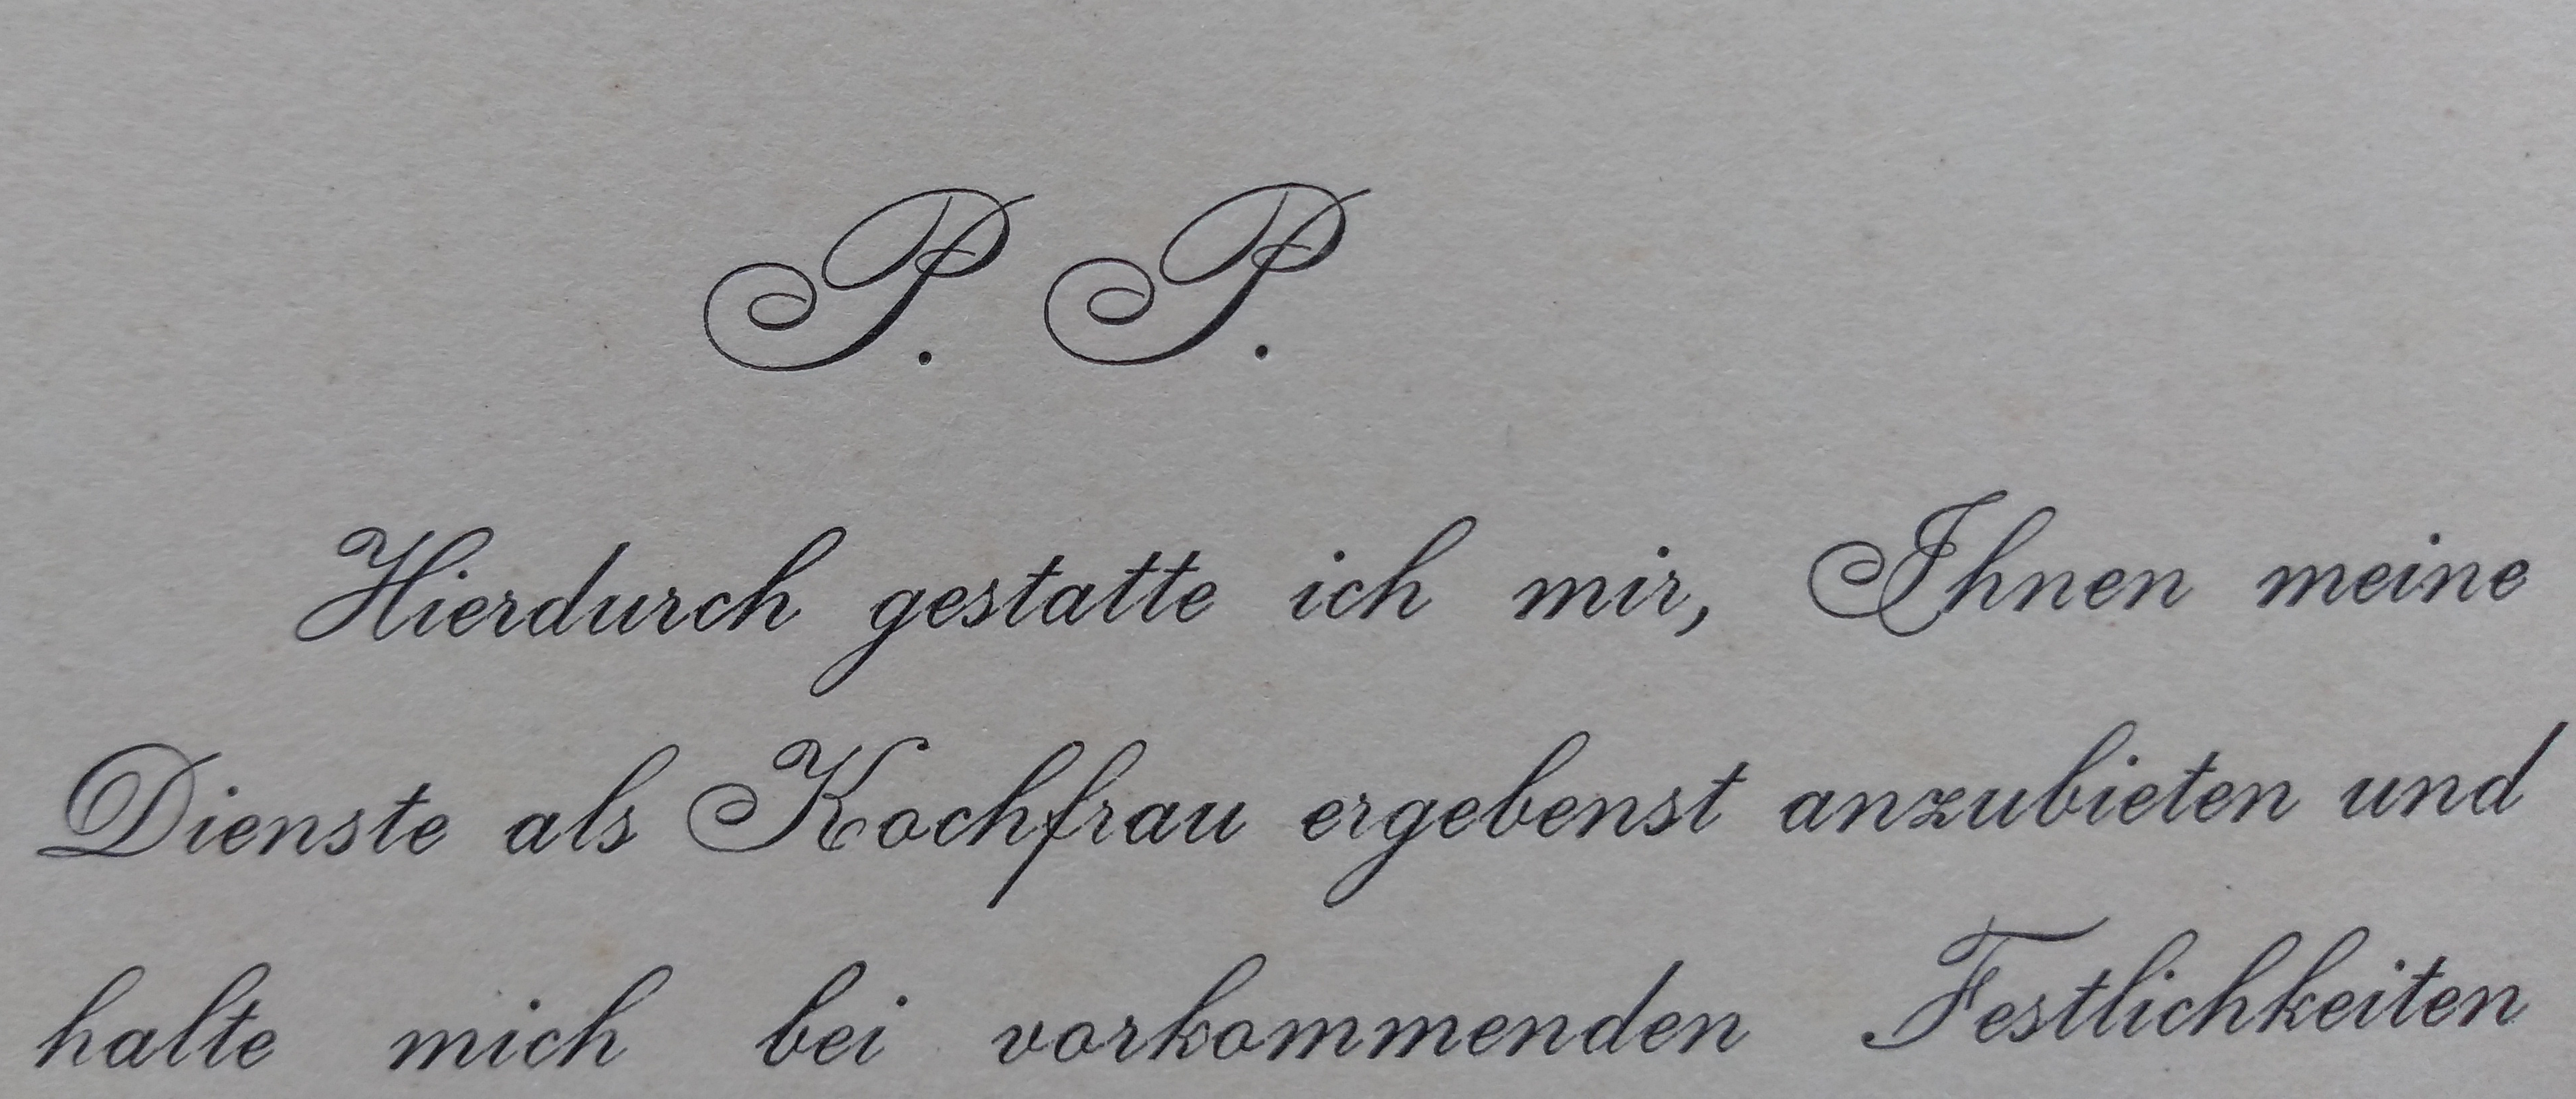 P. P.
Hierdurch gestatte ich mir, Ihnen meine
Dienste als Kochfrau ergebenst anzubieten und
halte mich bei vorkommenden Festlichkeiten